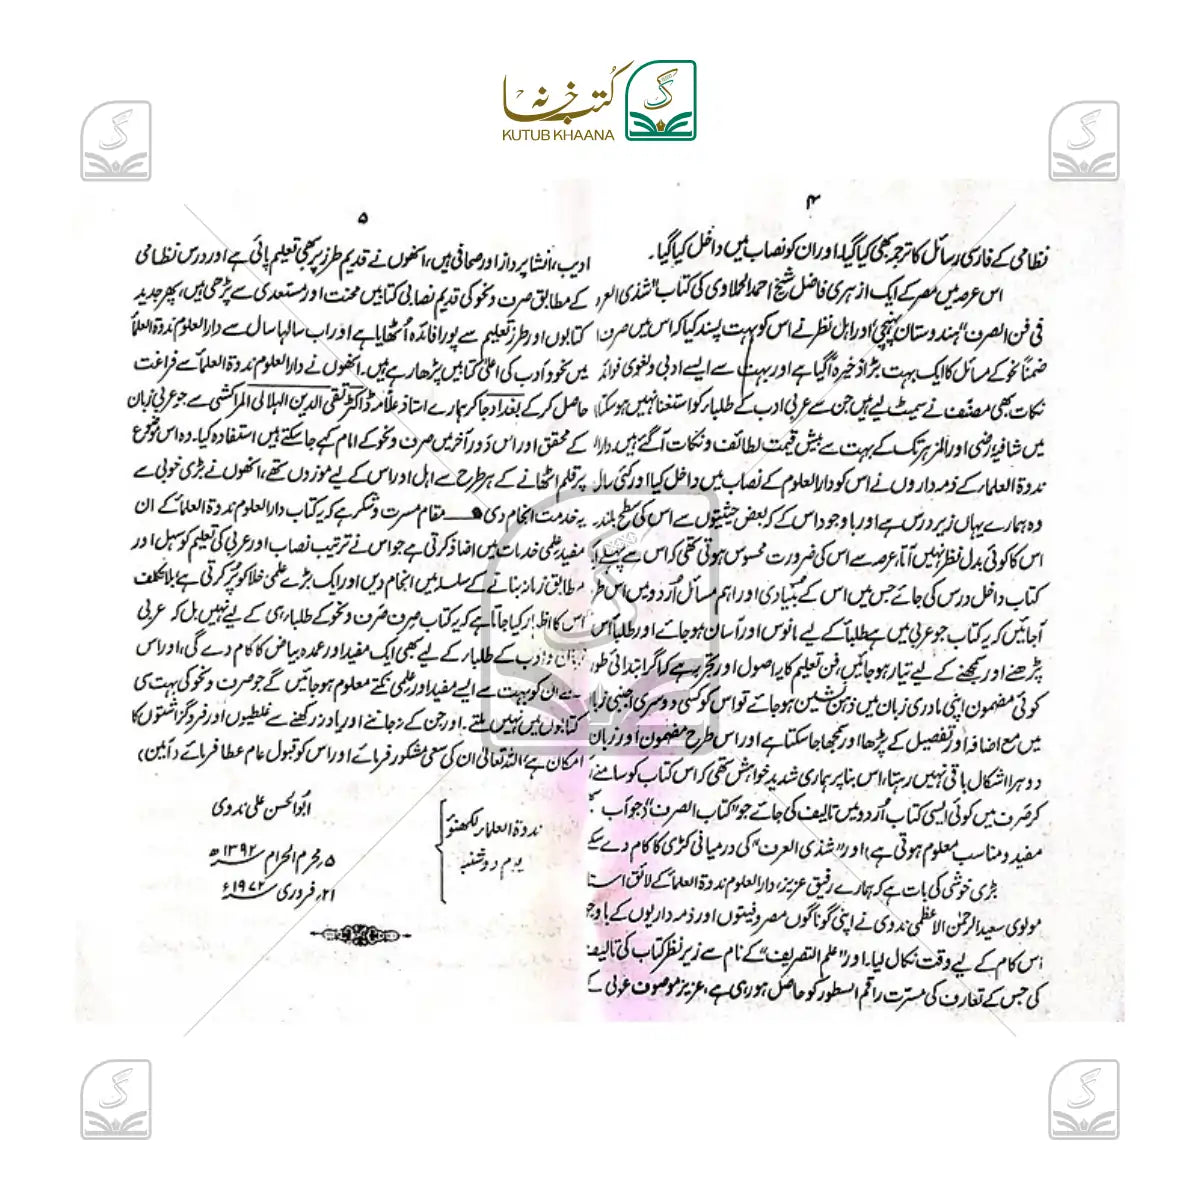 کتب خانہ
KUTUB KHAANA
۴
نظامی کے فارسی رسائل کا ترجمہ بھی کیا گیا، اور ان کو نصاب میں داخل کیا گیا۔
اس عرصہ میں مصر کے ایک ازہری فاضل شیخ احمد الحملاوی کی کتاب "شذی العر
فی فن الصرف" ہندوستان پہنچی، اور اہل نظر نے اس کو بہت پسند کیا کہ اس میں صرف
ضمناً نحو کے مسائل کا ایک بہت بڑا ذخیرہ آگیا ہے اور بہت سے ایسے ادبی و لغوی فوائد
نکات بھی مصنف نے سمیٹ لیے ہیں جن سے عربی ادب کے طلباء کو استغنا نہیں ہوسکتا
میں شافیہ، رضی اور المزہر تک کے بہت سے بیش قیمت لطائف و نکات آگئے ہیں، دارا
ندوۃ العلماء کے ذمہ داروں نے اس کو دارالعلوم کے نصاب میں داخل کیا اور کئی سال
وہ ہمارے یہاں زیر درس ہے اور باوجود اس کے کہ بعض حیثیتوں سے اس کی سطح بلند ہے
اس کا کوئی بدل نظر نہیں آتا، عرصہ سے اس کی ضرورت محسوس ہوتی تھی کہ اس سے پہلے ا
کتاب داخل درس کی جائے جس میں اس کے بنیادی اور اہم مسائل اُردو میں اس طر
آجائیں کہ یہ کتاب جو عربی میں ہے طلباً کے لیے مانوس اور آسان ہوجائے اور طلباً اس
پڑھنے اور سمجھنے کے لیے تیار ہوجائیں، فن تعلیم کا یہ اصول اور تجربہ ہے کہ اگر ابتدائی طور
کوئی مضمون اپنی مادری زبان میں ذہن نشین ہوجائے تو اس کو کسی دوسری اجنبی زبا
میں مع اضافہ اور تفصیل کے پڑھا اور سمجھا جاسکتا ہے اور اس طرح مضمون اور زبان
دوہرا اشکال باقی نہیں رہتا، اس بنا پر ہماری شدید خواہش تھی کہ اس کتاب کو سامنے ر
کر صَرف میں کوئی ایسی کتاب اُردو میں تالیف کی جائے جو "کتاب الصرف" (جو اب
مفید و مناسب معلوم ہوتی ہے) اور "شذی العرف" کی درمیانی کڑی کا کام دے سکے
بڑی خوشی کی بات ہے کہ ہمارے رفیق عزیز، دارالعلوم ندوۃ العلماً کے لائق استا
مولوی سعید الرحمٰن الاعظمی ندوی نے اپنی گوناگوں مصروفیتوں اور ذمہ داریوں کے باوجو
اس کام کے لیے وقت نکال لیا، اور "علم التصریف" کے نام سے زیر نظر کتاب کی تالیف
کی جس کے تعارف کی مسرت راقم السطور کو حاصل ہو رہی ہے، عزیز موصوف عربی کے
۵
ادیب، انشا پرداز اور صحافی ہیں، انھوں نے قدیم طرز پر بھی تعلیم پائی ہے اور درس نظامی
کے مطابق صرف و نحو کی قدیم نصابی کتابیں محنت اور مستعدی سے پڑھی ہیں، پھر جدید
کتابوں اور طرز تعلیم سے پورا فائدہ اُٹھایا ہے اور اب سالہا سال سے دارالعلوم ندوۃ العلماً
میں نحو و ادب کی اعلیٰ کتابیں پڑھا رہے ہیں۔ انھوں نے دارالعلوم ندوۃ العلماً سے فراغت
حاصل کرکے بغداد جاکر ہمارے استاذ علامہ ڈاکٹر تقی الدین الہلالی المراکشی سے جو عربی زبان
کے محقق اور اس دَور آخر میں صرف و نحو کے امام کہے جاسکتے ہیں استفادہ کیا۔ وہ اس موضوع
پر قلم اٹھانے کے ہر طرح سے اہل اور اس کے لیے موزوں تھے، انھوں نے بڑی خوبی سے
یہ خدمت انجام دی۔ مقام مسرت و تشکر ہے کہ یہ کتاب دارالعلوم ندوۃ العلماً کے ان
مفید علمی خدمات میں اضافہ کرتی ہے جو اس نے ترتیب نصاب اور عربی کی تعلیم کو سہل اور
مطابق زمانہ بنانے کے سلسلہ میں انجام دیں اور ایک بڑے علمی خلا کو پُر کرتی ہے، بلا تکلف
اس کا اظہار کیا جاتا ہے کہ یہ کتاب صرف صَرف و نحو کے طلباء ہی کے لیے نہیں بل کہ عربی
زبان و ادب کے طلباء کے لیے بھی ایک مفید اور عمدہ بیاض کا کام دے گی، اور اس
سے ان کو بہت سے ایسے مفید اور علمی نکتے معلوم ہوجائیں گے جو صرف و نحو کی بہت سی
کتابوں میں نہیں ملتے۔ اور جن کے نہ جاننے اور یاد نہ رکھنے سے غلطیوں اور فروگزاشتوں کا
امکان ہے، اللہ تعالیٰ ان کی سعی مشکور فرمائے اور اس کو قبول عام عطا فرمائے (آمین)
ابوالحسن علی ندوی
ندوۃ العلماء لکھنؤ
یوم دوشنبہ
۵؍ محرم الحرام ۱۳۹۲ھ
۲۱؍ فروری ۱۹۷۲ء